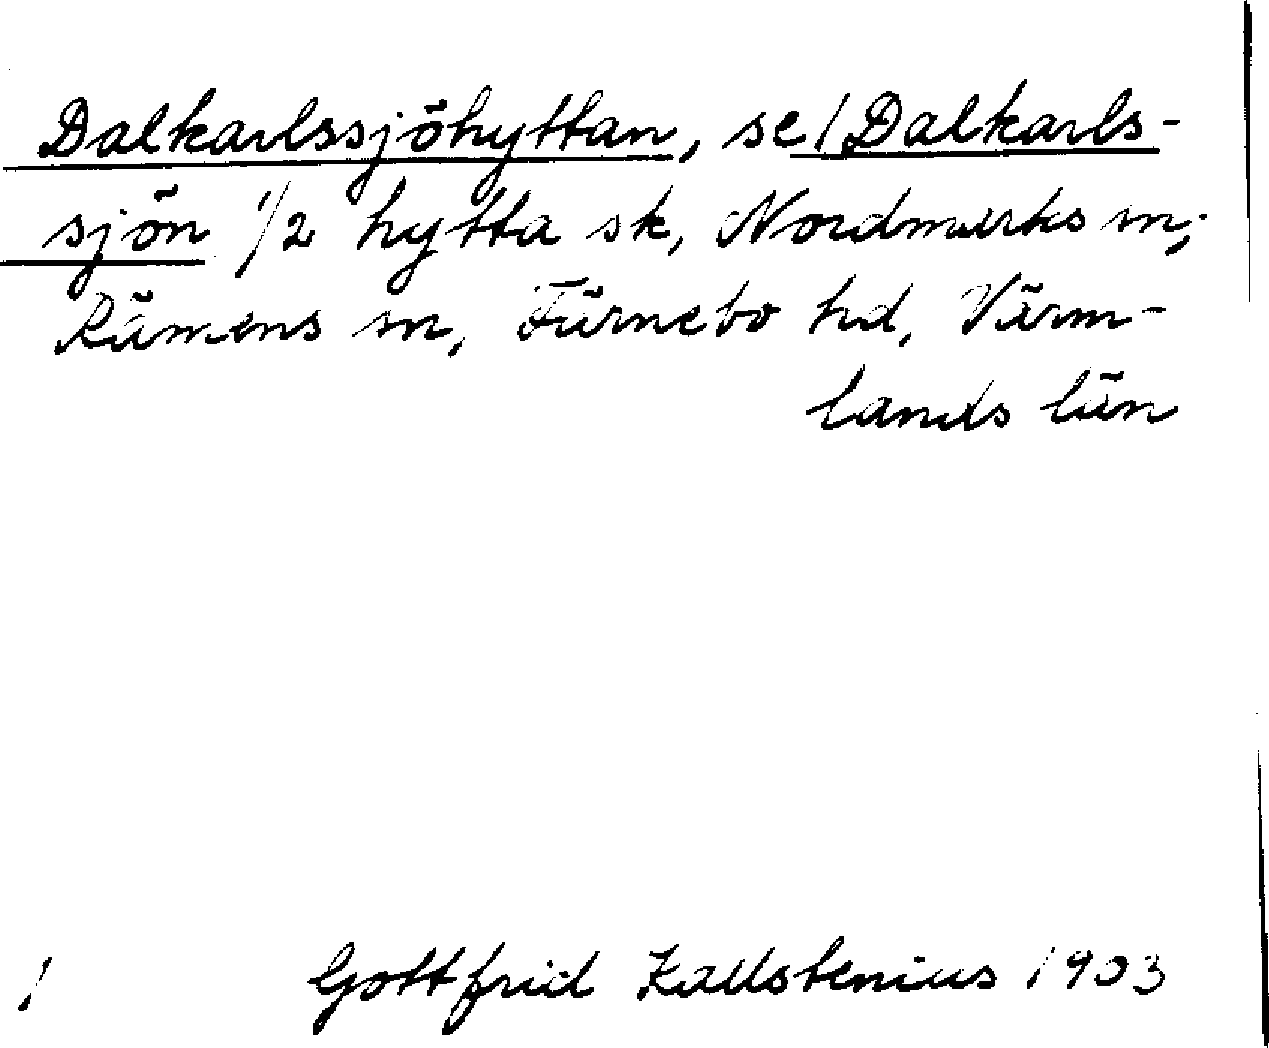 Dalkarlssjöhyttan, se / Dalkarls-
sjön 1/2 hytta sk, Nordmarks sn,
Rämens sn, Färnebo hd, Värm-
lands län
/ Gottfrid Kallstenius 1903